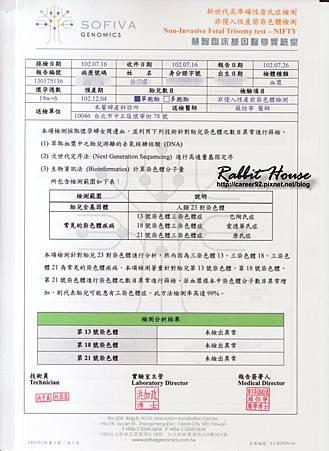 SOFIVA
GENOMICS
新世代高準確性唐氏症檢測
非侵入性產前染色體檢測
Non-Invasive Fetal Trisomy test – NIFTY
慧智臨床基因醫學實驗室
採檢日期 102.07.16 收件日期 102.07.16 報告日期 102.07.26
報告編號 病歷號碼 姓名 身分證字號 出生日期 檢體種類
130175136 血漿
懷孕週數 預產期 胎兒數目 檢驗項目
19w+6 102.12.04 ■單胞胎 □多胞胎 非侵入性產前染色體檢測
送檢單位 禾馨婦產科診所 送檢醫師 蘇怡寧 醫師
10046 台北市中正區懷寧街 78 號
本項檢測採取懷孕婦女周邊血，並利用下列技術針對胎兒染色體之數目異常進行篩檢。
(1) 萃取血漿中之胎兒游離的去氧核糖核酸 (DNA)
(2) 次世代定序法 (Next Generation Sequencing) 進行高通量基因定序
(3) 生物資訊法 (Bioinformatics) 計算染色體分子量
所包含檢測範圍如下表：
Rabbit House
http://career92.pixnet.net/blog
檢測範圍 說明
胎兒全基因體 人類 23 對染色體
常見的染色體疾病
13 號染色體三染色體症 巴陶氏症
18 號染色體三染色體症 愛德華氏症
21 號染色體三染色體症 唐氏症
本項檢測針對胎兒 23 對染色體進行分析，然而因為三染色體 13、三染色體 18、三染色
體 21 為常見的染色體疾病，本項檢測著重針對胎兒第 13 號染色體、第 18 號染色體、
第 21 號染色體進行染色體之數目異常進行篩檢。若血漿樣本中染色體分子數目異常增
加，則代表胎兒可能患有三染色體症，此方法檢測率高達 99%。
檢測分析結果
第 13 號染色體 未檢出異常
第 18 號染色體 未檢出異常
第 21 號染色體 未檢出異常
技術員 實驗室主管 報告簽署人
Technician Laboratory Director Medical Director
洪加政
博士
www.sofivagenomics.com.tw